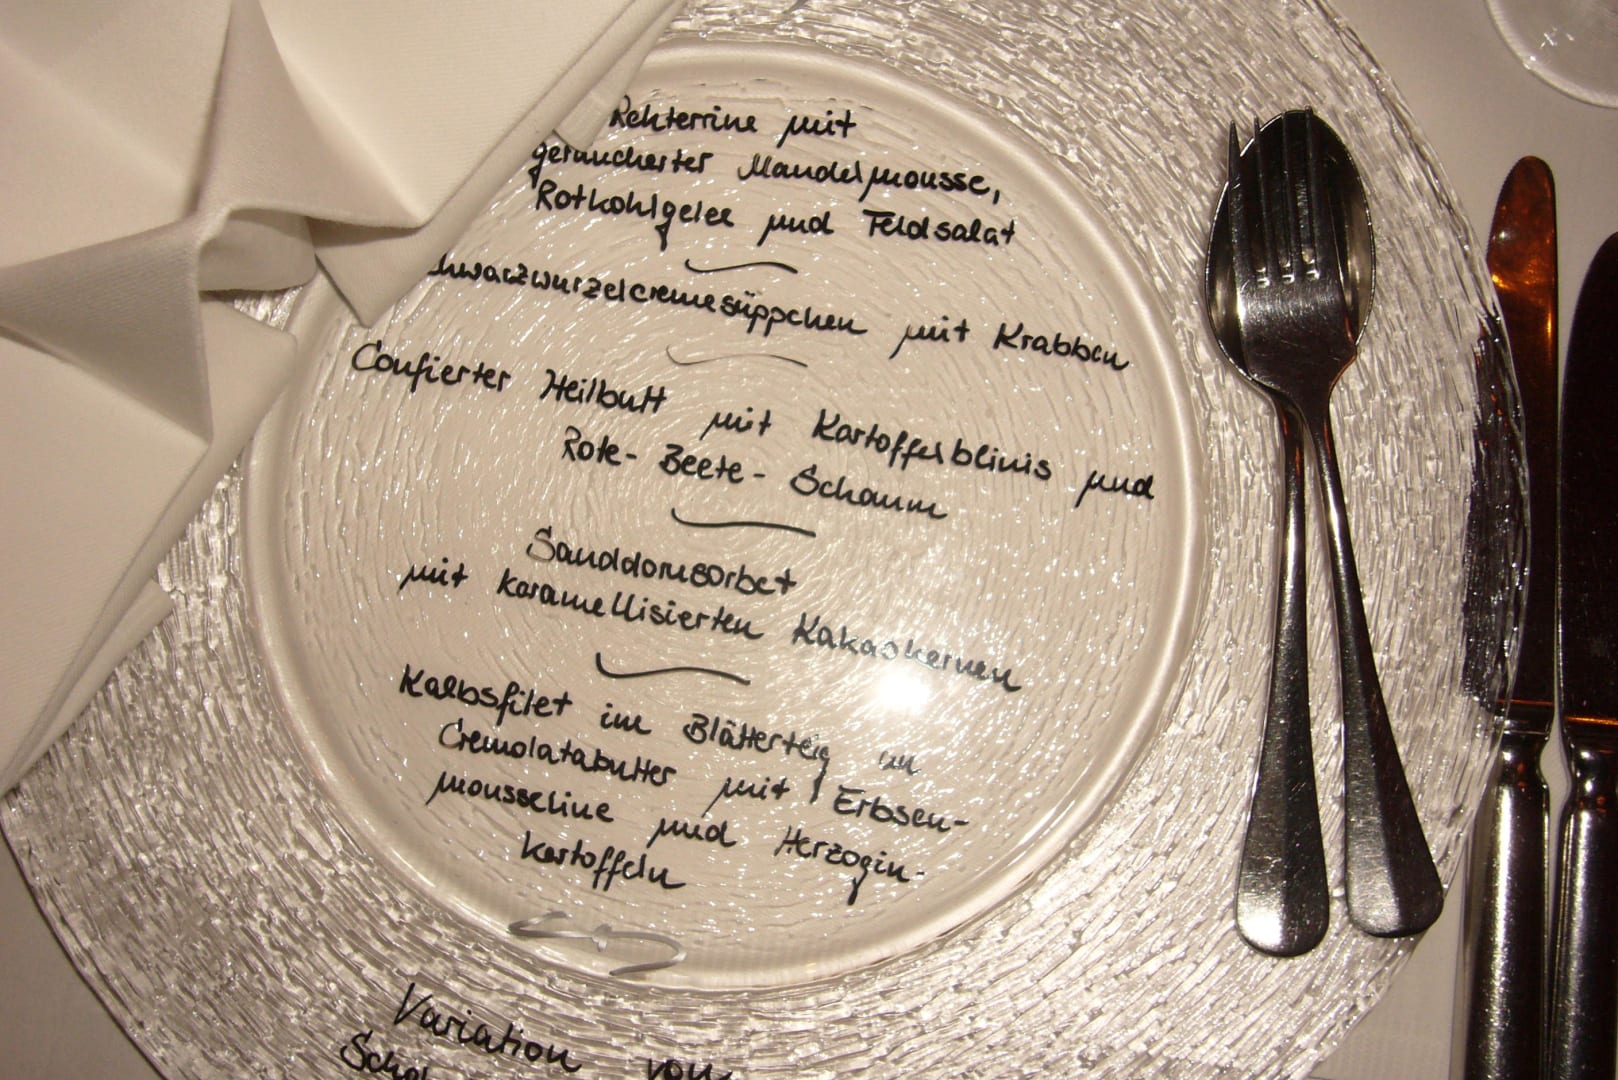 Rehterrine mit
geräucherter Mandelmousse,
Rotkohlgelee und Feldsalat
chwarzwurzelcremesüppchen mit Krabben
Confierter Heilbutt mit Kartoffelblinis und
Rote-Beete-Schaum
Sanddornsorbet
mit karamellisierten Kakaokernen
Kalbsfilet im Blätterteig an
Cremolatabutter mit Erbsen-
mousseline und Herzogin-
kartoffeln
Variation von
Schol